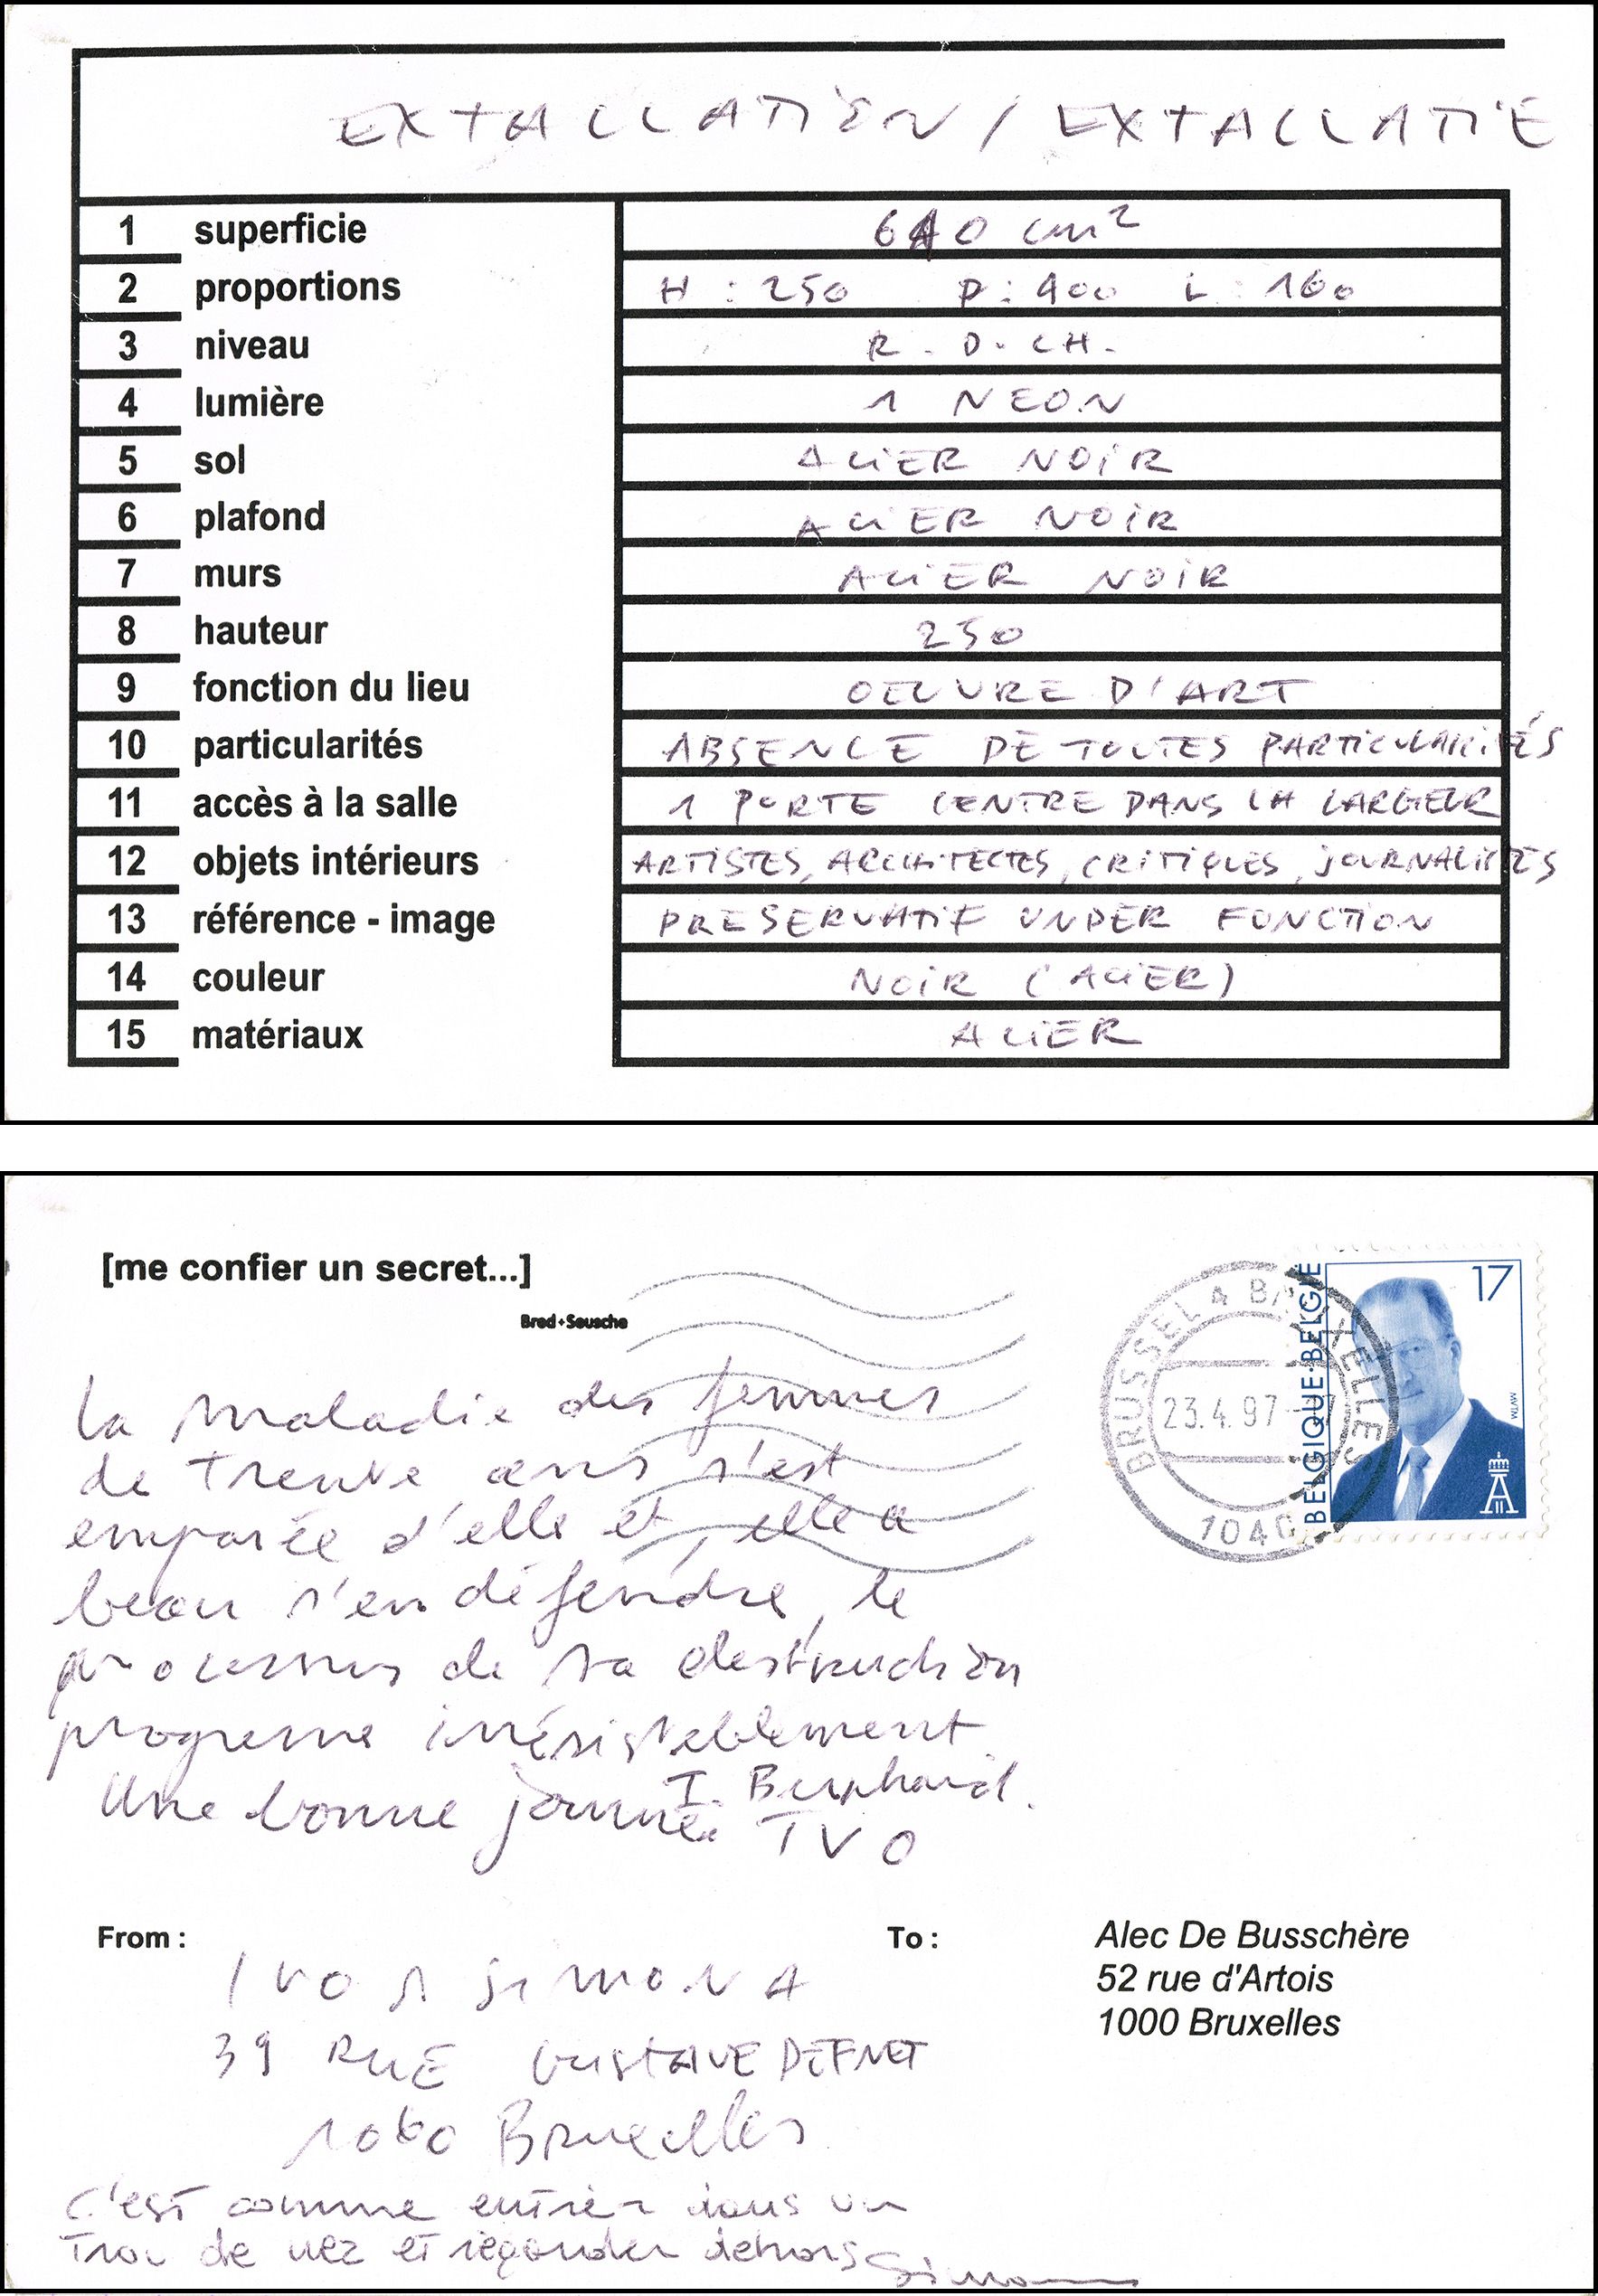 EXTALLATION / EXTALLATIE
1 superficie 640 cm²
2 proportions H : 250 P : 400 L : 160
3 niveau R. D. CH.
4 lumière 1 NEON
5 sol ACIER NOIR
6 plafond ACIER NOIR
7 murs ACIER NOIR
8 hauteur 250
9 fonction du lieu OEUVRE D'ART
10 particularités ABSENCE DE TOUTES PARTICULARITÉS
11 accès à la salle 1 PORTE CENTRE DANS LA LARGEUR
12 objets intérieurs ARTISTES, ARCHITECTES, CRITIQUES, JOURNALISTES
13 référence - image PRESERVATIF UNDER FONCTION
14 couleur NOIR (ACIER)
15 matériaux ACIER
[me confier un secret...]
Bred+Seusche
BRUSSEL 4 BRUXELLES
23.4.97
1040
BELGIQUE·BELGIË
17
MVTM
La maladie des femmes
de trente ans s'est
emparée d'elle et, elle a
beau s'en défendre, le
processus de sa destruction
progresse irrésistiblement.
T. Bernhard.
Une bonne journée. TVO
From :
IVO SIMONA
39 RUE GUSTAVE DEFNET
1060 Bruxelles
To :
Alec De Busschère
52 rue d'Artois
1000 Bruxelles
C'est comme entrer dans un
trou de nez et regarder dehors
Simona